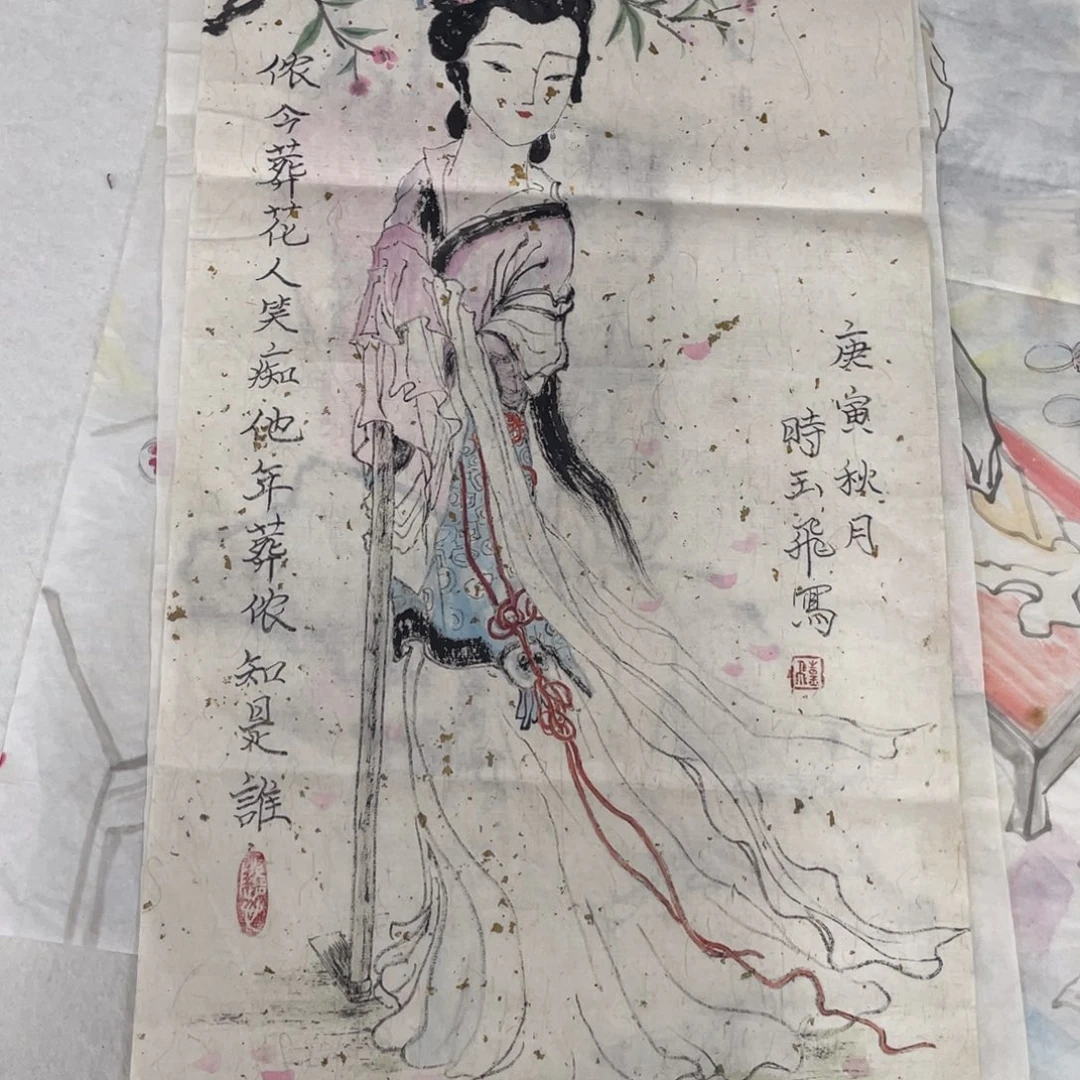 庚寅秋月
時玉飛寫
侬今葬花人笑痴他年葬侬知是誰